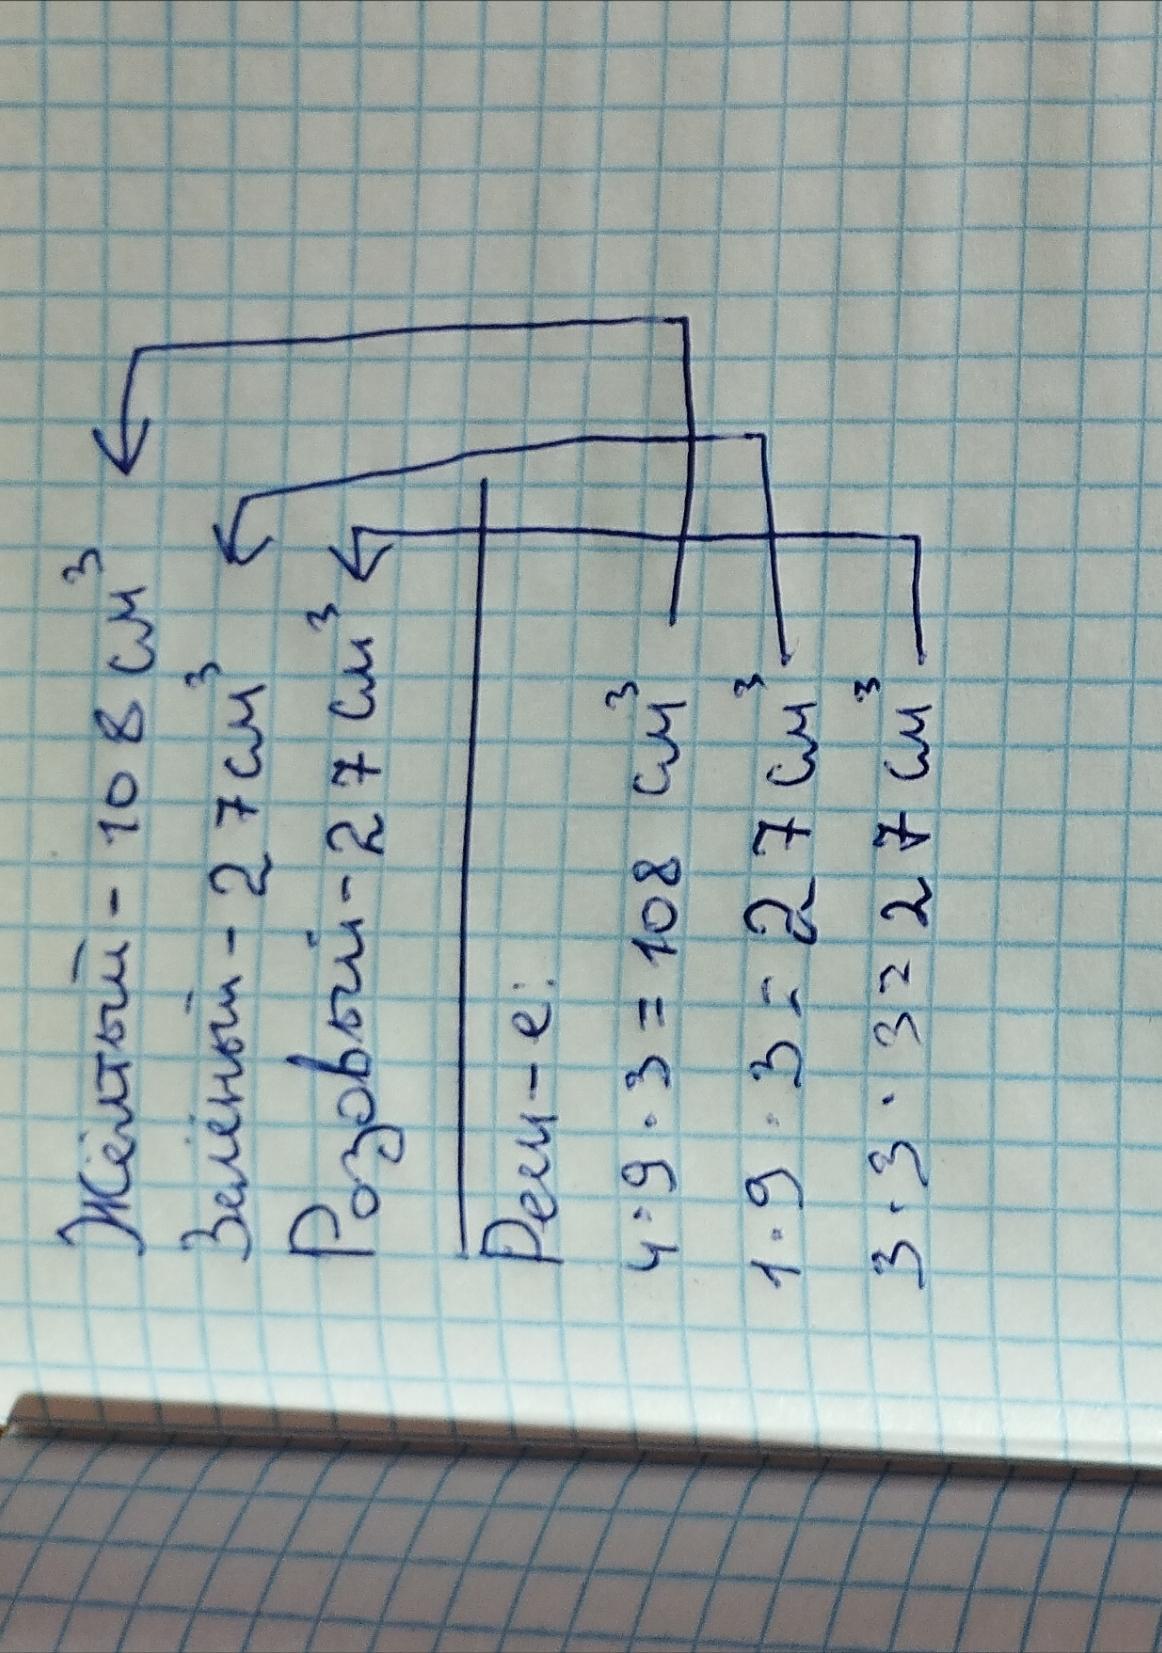 Жёлтый - 108 см³
Зелёный - 27 см³
Розовый - 27 см³
Реш-е:
4·9·3=108 см³
1·9·3=27 см³
3·3·3=27 см³